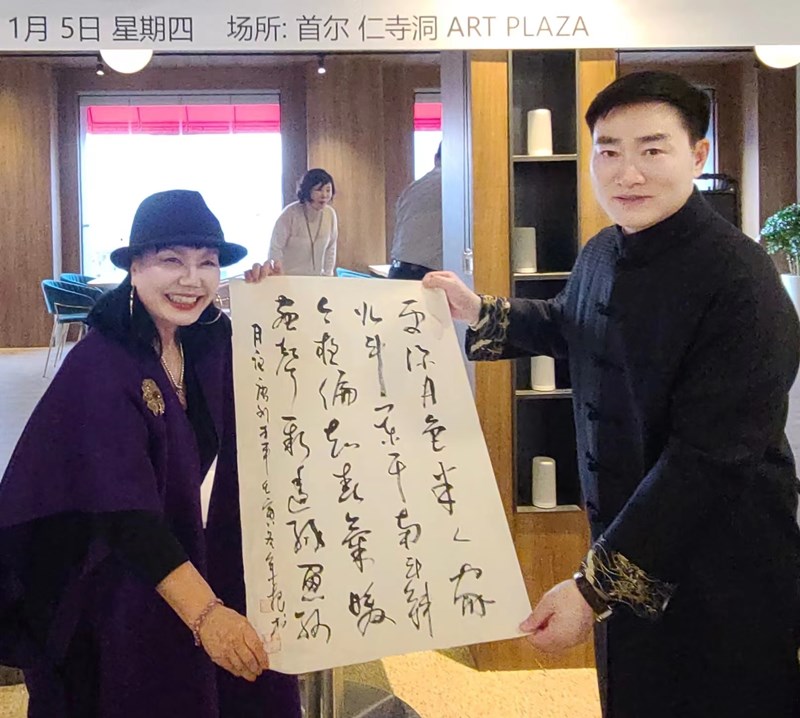 1月 5日 星期四 场所: 首尔 仁寺洞 ART PLAZA
更深月色半人家
北斗阑干南斗斜
今夜偏知春氣暖
蟲聲新透綠窗紗
月夜 唐刘方平 壬寅冬